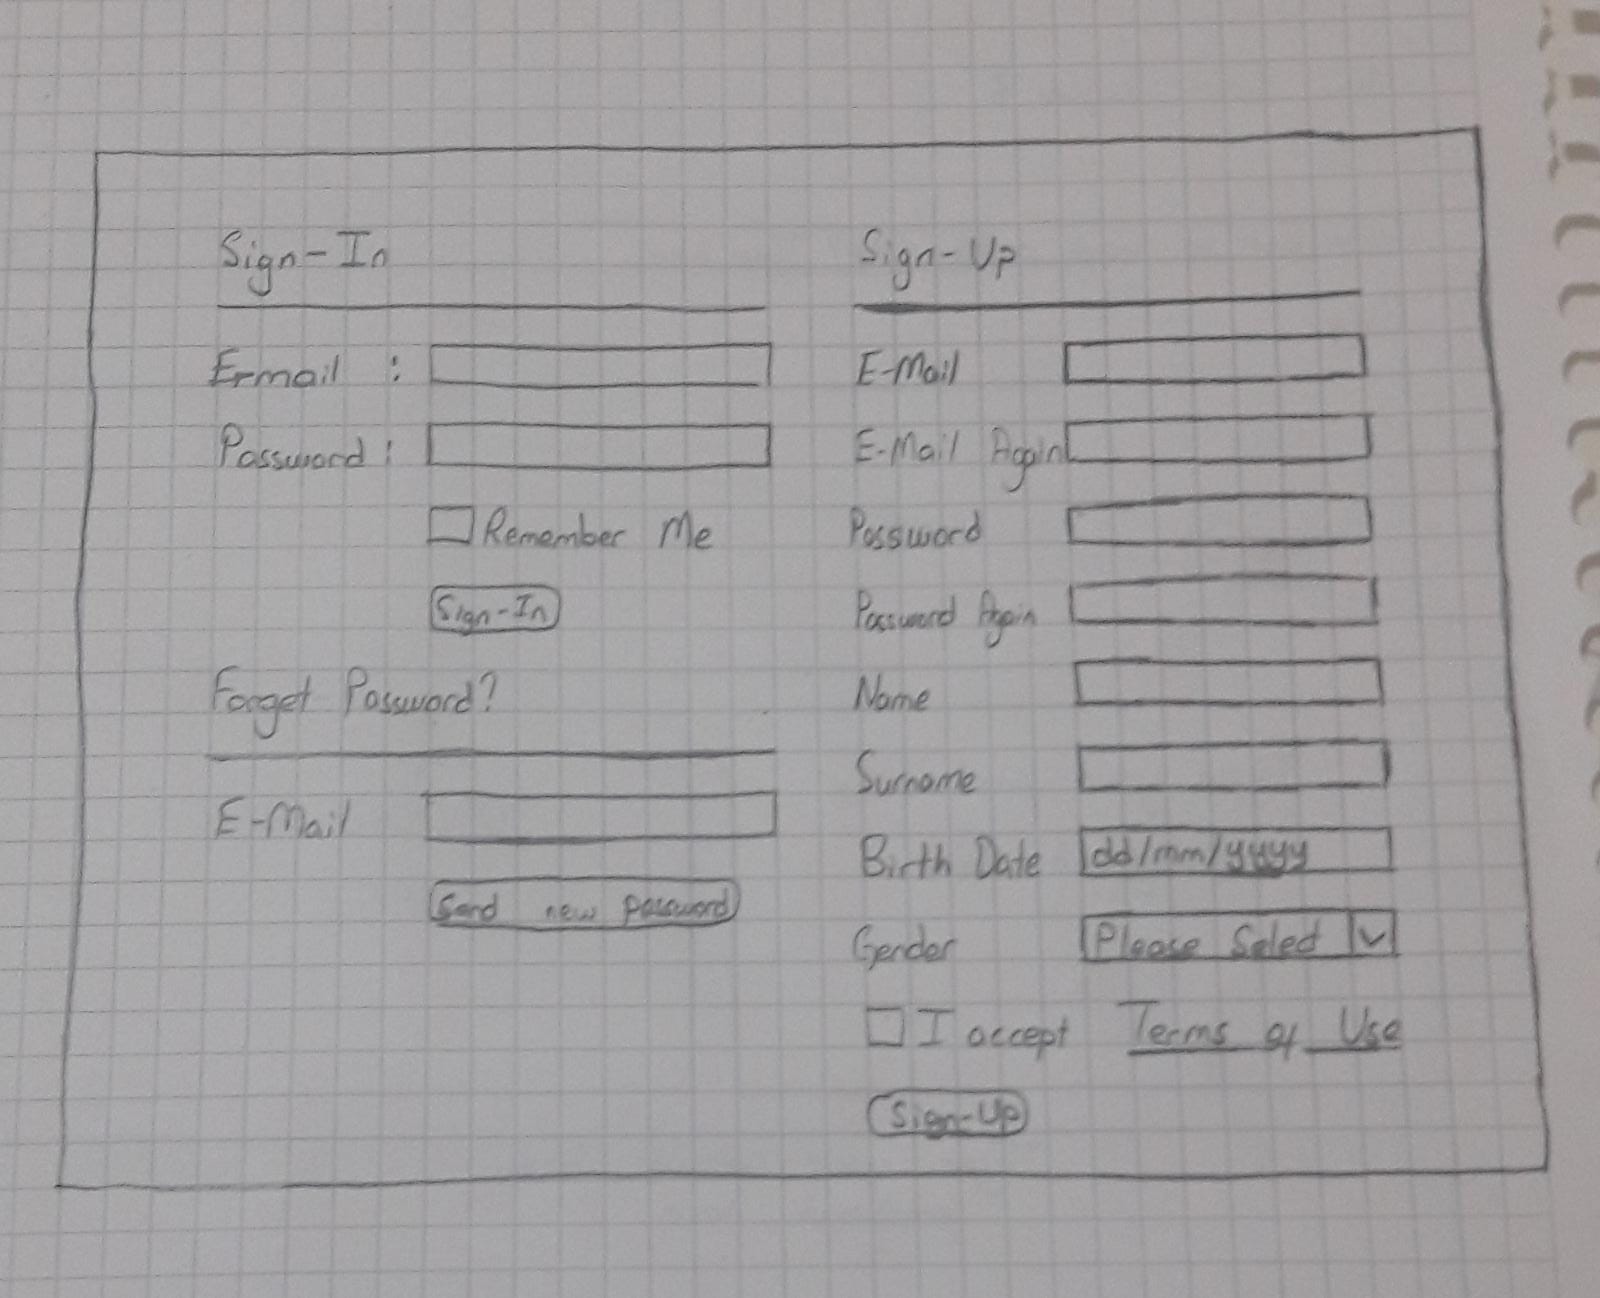 Sign-In
E-mail :
Password :
Remember Me
Sign-In
Forget Password?
E-Mail
Send new password
Sign-Up
E-Mail
E-Mail Again
Password
Password Again
Name
Surname
Birth Date dd/mm/yyyy
Gender Please Select
I accept Terms of Use
Sign-Up